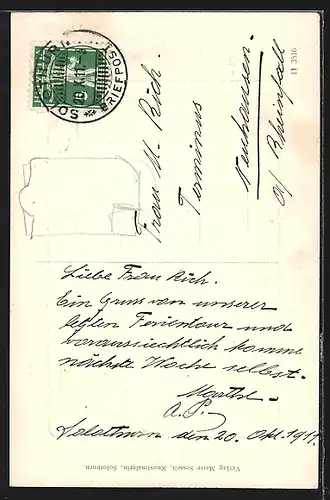 SOLOTHURN
BRIEFPOST
20.X.11
HELVETIA
11 3516
Frau M. Rich.
Terminus
Neuhausen.
a/ Rheinfall
Liebe Frau Rich.
Ein Gruss von unserer
letzten Ferientour und
voraussichtlich komme
nächste Woche selbst.
Marthe
A. P.
Solothurn den 20. Okt. 1911.
Verlag Marie Sesseli, Kunstmalerin, Solothurn.